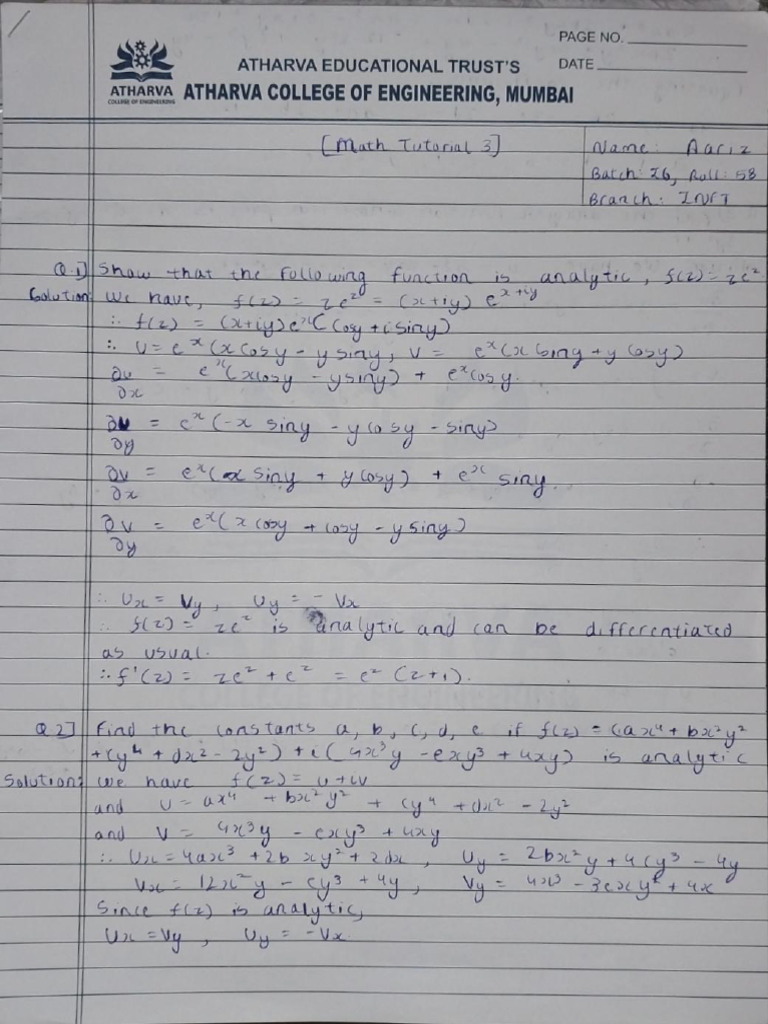 PAGE NO.
DATE
ATHARVA
COLLEGE OF ENGINEERING
ATHARVA EDUCATIONAL TRUST'S
ATHARVA COLLEGE OF ENGINEERING, MUMBAI
[Math Tutorial 3]
Name: Aariz
Batch: I6, Roll: 58
Branch: INFT
Q.1] Show that the following function is analytic, f(z) = ze^z
Solution: We have, f(z) = ze^z = (x+iy) e^x+iy
∴ f(z) = (x+iy)e^x(cosy + isiny)
∴ U = e^x(xcosy - ysiny, V = e^x(x siny + y cosy)
∂u/∂x = e^x(xcosy - ysiny) + e^x cosy.
∂u/∂y = e^x(-x siny - ycosy - siny)
∂v/∂x = e^x(x siny + ycosy) + e^x siny.
∂v/∂y = e^x(xcosy + cosy - ysiny)
∴ Ux = Vy, Uy = - Vx
∴ f(z) = ze^z is analytic and can be differentiated
as usual.
∴ f'(z) = ze^z + e^z = e^z (z+1).
Q 2] Find the constants a, b, c, d, e if f(z) = (ax⁴ + bx²y²
+cy⁴ + dx² - 2y²) + i(4x³y - exy³ + 4xy) is analytic
Solution: We have f(z) = u+iv
and U = ax⁴ + bx²y² + cy⁴ + dx² - 2y²
and V = 4x³y - exy³ + 4xy
∴ Ux = 4ax³ + 2bxy² + 2dx, Uy = 2bx²y + 4cy³ - 4y
Vx = 12x²y - ey³ + 4y, Vy = 4x³ - 3exy² + 4x
Since f(z) is analytic,
Ux = Vy, Uy = -Vx